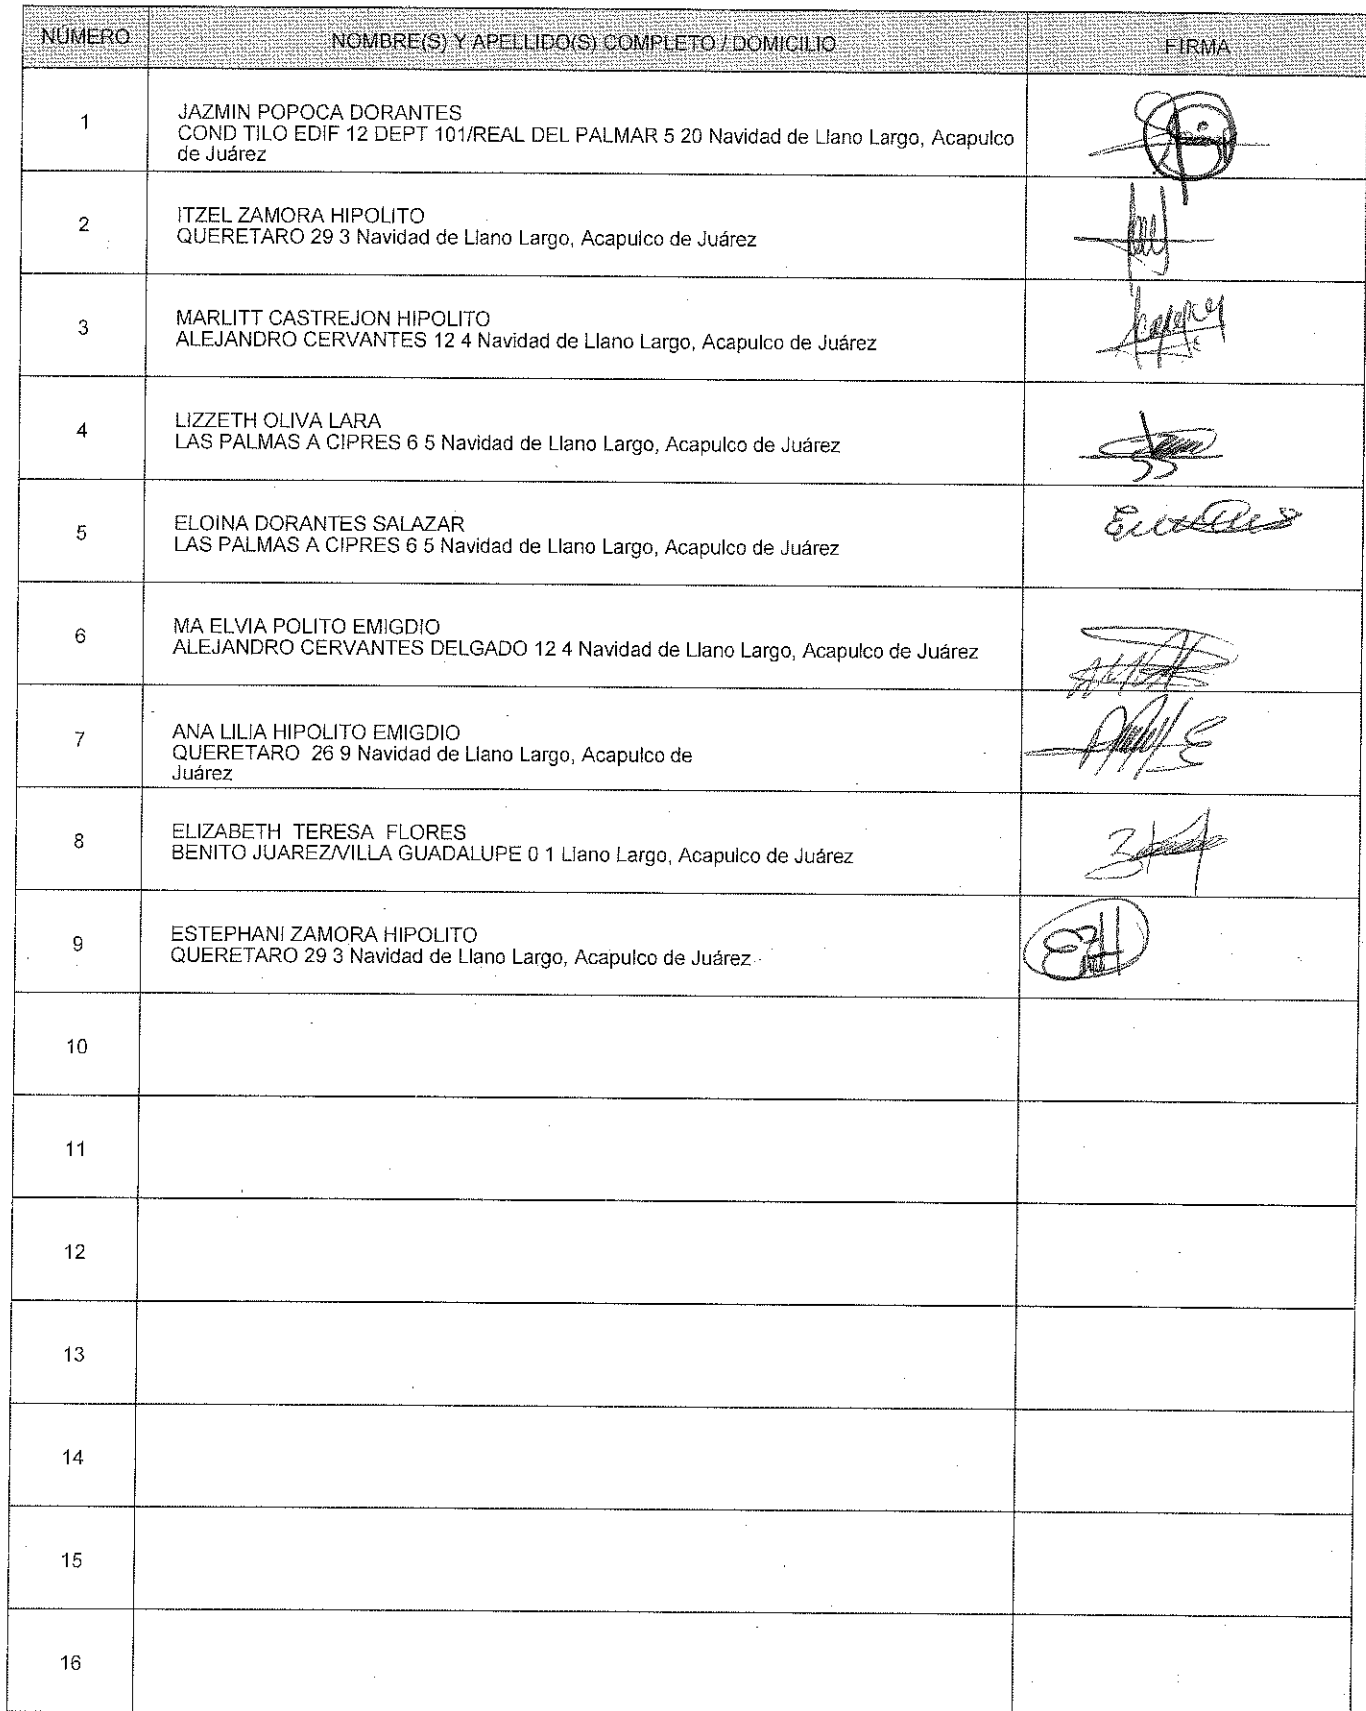 NÚMERO NOMBRE(S) Y APELLIDO(S) COMPLETO / DOMICILIO FIRMA
1 JAZMIN POPOCA DORANTES
COND TILO EDIF 12 DEPT 101/REAL DEL PALMAR 5 20 Navidad de Llano Largo, Acapulco
de Juárez
2 ITZEL ZAMORA HIPOLITO
QUERETARO 29 3 Navidad de Llano Largo, Acapulco de Juárez
3 MARLITT CASTREJON HIPOLITO
ALEJANDRO CERVANTES 12 4 Navidad de Llano Largo, Acapulco de Juárez
4 LIZZETH OLIVA LARA
LAS PALMAS A CIPRES 6 5 Navidad de Llano Largo, Acapulco de Juárez
5 ELOINA DORANTES SALAZAR
LAS PALMAS A CIPRES 6 5 Navidad de Llano Largo, Acapulco de Juárez
6 MA ELVIA POLITO EMIGDIO
ALEJANDRO CERVANTES DELGADO 12 4 Navidad de Llano Largo, Acapulco de Juárez
7 ANA LILIA HIPOLITO EMIGDIO
QUERETARO 26 9 Navidad de Llano Largo, Acapulco de
Juárez
8 ELIZABETH TERESA FLORES
BENITO JUAREZ/VILLA GUADALUPE 0 1 Llano Largo, Acapulco de Juárez
9 ESTEPHANI ZAMORA HIPOLITO
QUERETARO 29 3 Navidad de Llano Largo, Acapulco de Juárez
EZH
10
11
12
13
14
15
16